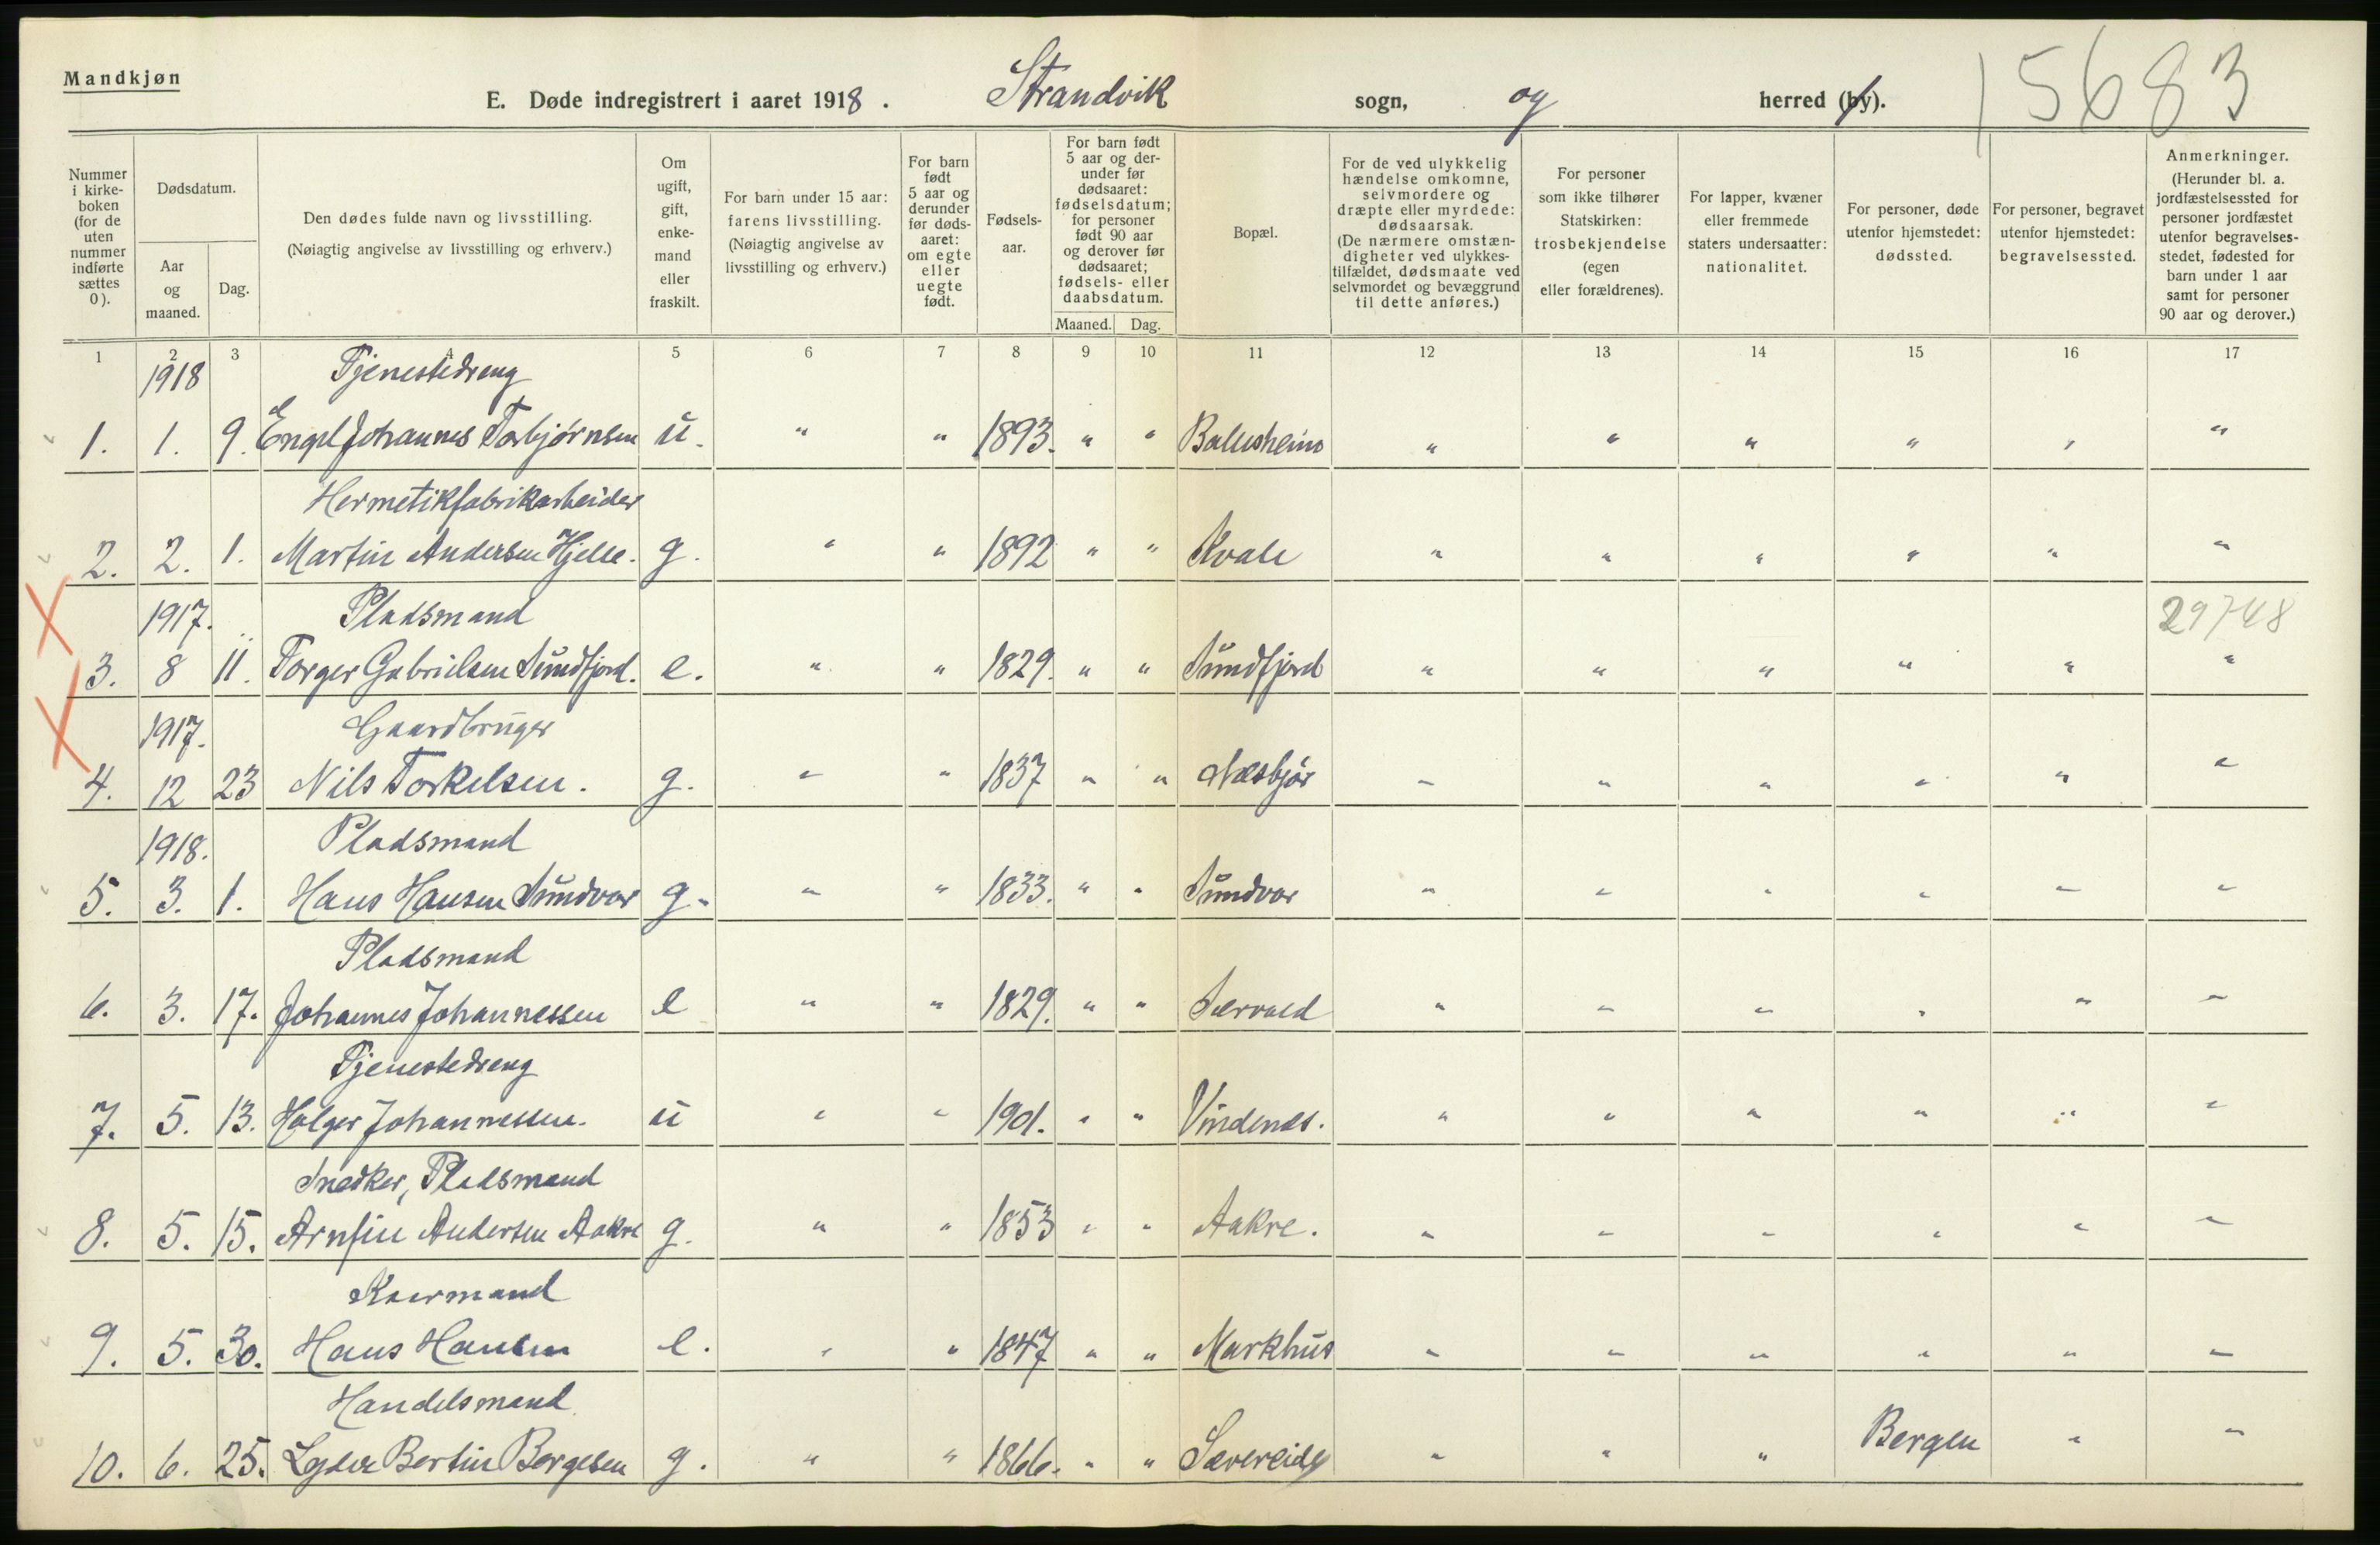 Mandkjøn
15683
E. Døde indregistrert i aaret 1918. Strandvik sogn, og herred (by).
Nummer i kirke-boken (for de uten nummer indførte sættes 0).
Dødsdatum.
Aar og maaned.
Dag.
Den dødes fulde navn og livsstilling. (Nøiagtig angivelse av livsstilling og erhverv.)
Om ugift, gift, enke-mand eller fraskilt.
For barn under 15 aar: farens livsstilling. (Nøiagtig angivelse av livsstilling og erhverv.)
For barn født 5 aar og derunder før døds-aaret: om egte eller uegte født.
Fødsels-aar.
For barn født 5 aar og der-under før dødsaaret: fødselsdatum; for personer født 90 aar og derover før dødsaaret; fødsels- eller daabsdatum.
Maaned. Dag.
Bopæl.
For de ved ulykkelig hændelse omkomne, selvmordere og dræpte eller myrdede: dødsaarsak. (De nærmere omstæn-digheter ved ulykkes-tilfældet, dødsmaate ved selvmordet og bevæggrund til dette anføres.)
For personer som ikke tilhører Statskirken: trosbekjendelse (egen eller forældrenes).
For lapper, kvæner eller fremmede staters undersaatter: nationalitet.
For personer, døde utenfor hjemstedet: dødssted.
For personer, begravet utenfor hjemstedet: begravelsessted.
Anmerkninger. (Herunder bl. a. jordfæstelsessted for personer jordfæstet utenfor begravelses-stedet, fødested for barn under 1 aar samt for personer 90 aar og derover.)
1 2 3 4 5 6 7 8 9 10 11 12 13 14 15 16 17
1918 Tjenestedreng
1. 1. 9. Engel Johannes Torbjørnsen u. " " 1893. " " " " " " " "
Hermetikfabrikarbeider
2. 2. 1. Martin Andersen Hjelle. g. " " 1892 " " Kvale " " " " " "
1917. Pladsmand 29748
3. 8 11. Torger Gabrielsen Sundfjord. e. " " 1829. " " Sundfjord " " " " " "
1917. Gaardbruger
4. 12 23 Nils Torkelsen. g. " " 1837 " " " " " " " "
1918. Pladsmand
5. 3. 1. Hans Hansen Sundvor g. " " 1833. " " Sundvor " " " " " "
Pladsmand
6. 3. 17. Johannes Johannessen e " " 1829. " " " " " " " "
Tjenestedreng
7. 5. 13. Holger Johannessen. u " " 1901. " " Vindenes. " " " " " "
Snedker, Pladsmand
8. 5. 15. Arnfin Andersen Aakre g. " " 1853 " " Aakre. " " " " " "
Kaarmand
9. 5. 30. Hans Hansen e. " " 1847 " " Markhus " " " " " "
Handelsmand
10. 6. 25. Lyder Bertin Børgesen g. " " 1866. " " Sævereide " " " Bergen " "